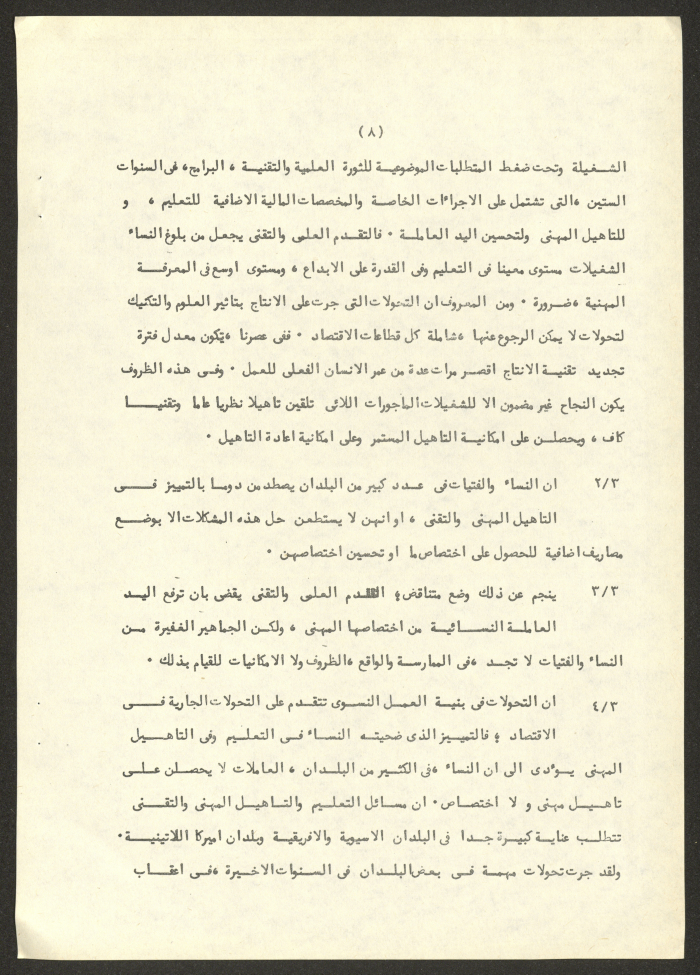 (٨)
الشغيلة وتحت ضغط المتطلبات الموضوعية للثورة العلمية والتقنية ، البرامج، فى السنوات
الستين ،التى تشتمل على الاجراءات الخاصة والمخصصات المالية الاضافية للتعليم ، و
للتاهيل المهنى ولتحسين اليد العاملة . فالتقدم العلمى والتقنى يجعل من بلوغ النساء
الشغيلات مستوى معينا فى التعليم وفى القدرة على الابداع ، ومستوى اوسع فى المعرفة
المهنية ،ضرورة . ومن المعروف ان التحولات التى جرت على الانتاج بتاثير العلوم والتكنيك
لتحولات لا يمكن الرجوع عنها ،شاملة كل قطاعات الاقتصاد . ففى عصرنا ،تكون معدل فترة
تجديد تقنية الانتاج اقصر مرات عدة من عمر الانسان الفعلى للعمل . وفى هذه الظروف
يكون النجاح غير مضمون الا للشغيلات الماجورات اللائى تلقين تاهيلا نظريا عاما وتقنيا
كاف ، ويحصلن على امكانية التاهيل المستمر وعلى امكانية اعادة التاهيل .
٢/٣ ان النساء والفتيات فى عدد كبير من البلدان يصطدمن دوما بالتمييز فى
التاهيل المهنى والتقنى ، او انهن لا يستطعن حل هذه المشكلات الا بوضع
مصاريف اضافية للحصول على اختصاص ما او تحسين اختصاصهن .
٣/٣ ينجم عن ذلك وضع متناقض؛ التقدم العلمى والتقنى يقضى بان ترفع اليد
العاملة النسائية من اختصاصها المهنى ، ولكن الجماهير الغفيرة من
النساء والفتيات لا تجد ،فى الممارسة والواقع ،الظروف ولا الامكانيات للقيام بذلك .
٤/٣ ان التحولات فى بنية العمل النسوى تتقدم على التحولات الجارية فى
الاقتصاد ؛ فالتمييز الذى ضحيته النساء فى التعليم وفى التاهيل
المهنى يؤدى الى ان النساء ،فى الكثير من البلدان ، العاملات لا يحصلن على
تاهيل مهنى و لا اختصاص . ان مسائل التعليم والتاهيل المهنى والتقنى
تتطلب عناية كبيرة جدا فى البلدان الاسيوية والافريقية وبلدان اميركا اللاتينية .
ولقد جرت تحولات مهمة فى بعض البلدان فى السنوات الاخيرة ،فى اعقاب